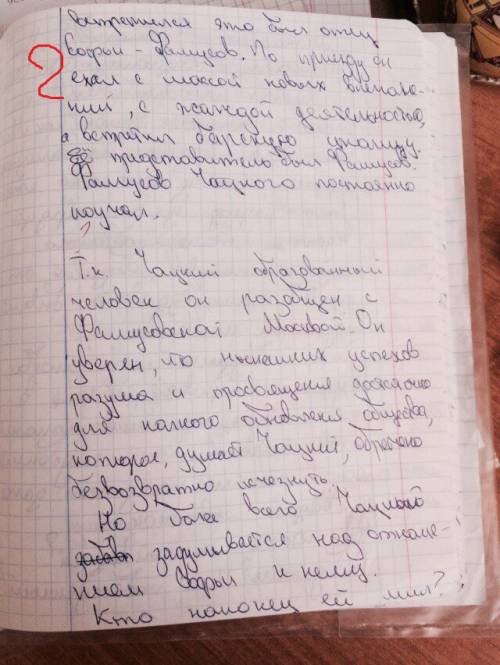 встретился это был отец
Софьи - Фамусов. По приезду он
2
ехал с массой новых впечатле-
ний, с жаждой деятельностью,
а встретил барскую
её представитель был Фамусов.
Фамусов Чацкого постоянно
поучал.
Т.к. Чацкий образованный
человек он разобщен с
Фамусовской Москвой. Он
уверен, что нынешних успехов
разума и просвещения достаточно
для полного обновления общества,
которое, думает Чацкий, обречено
безвозвратно исчезнуть.
Но более всего Чацкий
задумывается над отноше-
нием Софьи к нему.
Кто наконец ей мил?